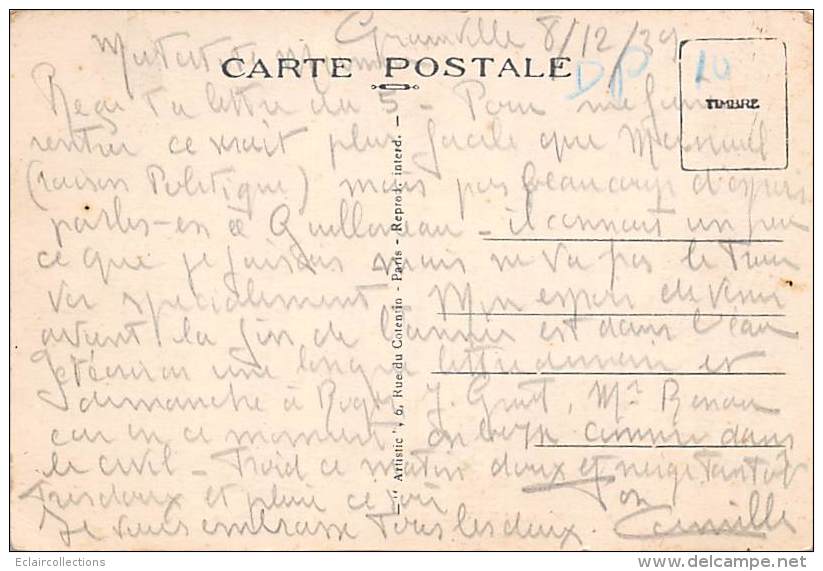 Granville 8/12/39
CARTE POSTALE
DP 10
TIMBRE
Reçu ta lettre du 5 - Pour me faire
rentrer ce serait plus facile que
(raison Politique) mais pas beaucoup d'espoir
parles-en à Guilloneau - il connait un peu
ce que je faisais mais ne va pas le
voir spécialement - Mon espoir de venir
avant la fin de l'année est dans l'eau
Je t'écrirai une longue lettre demain et
dimanche à Roger, J. Mr Renou
car en ce moment on comme dans
le civil - Froid ce matin doux et neige tantôt
Très doux et pluie ce soir
Je vous embrasse tous les deux. Camille
"Artistic", 6, Rue du Cotentin - Paris - Reprod. interd.
Eclaircollections
www.delcampe.net